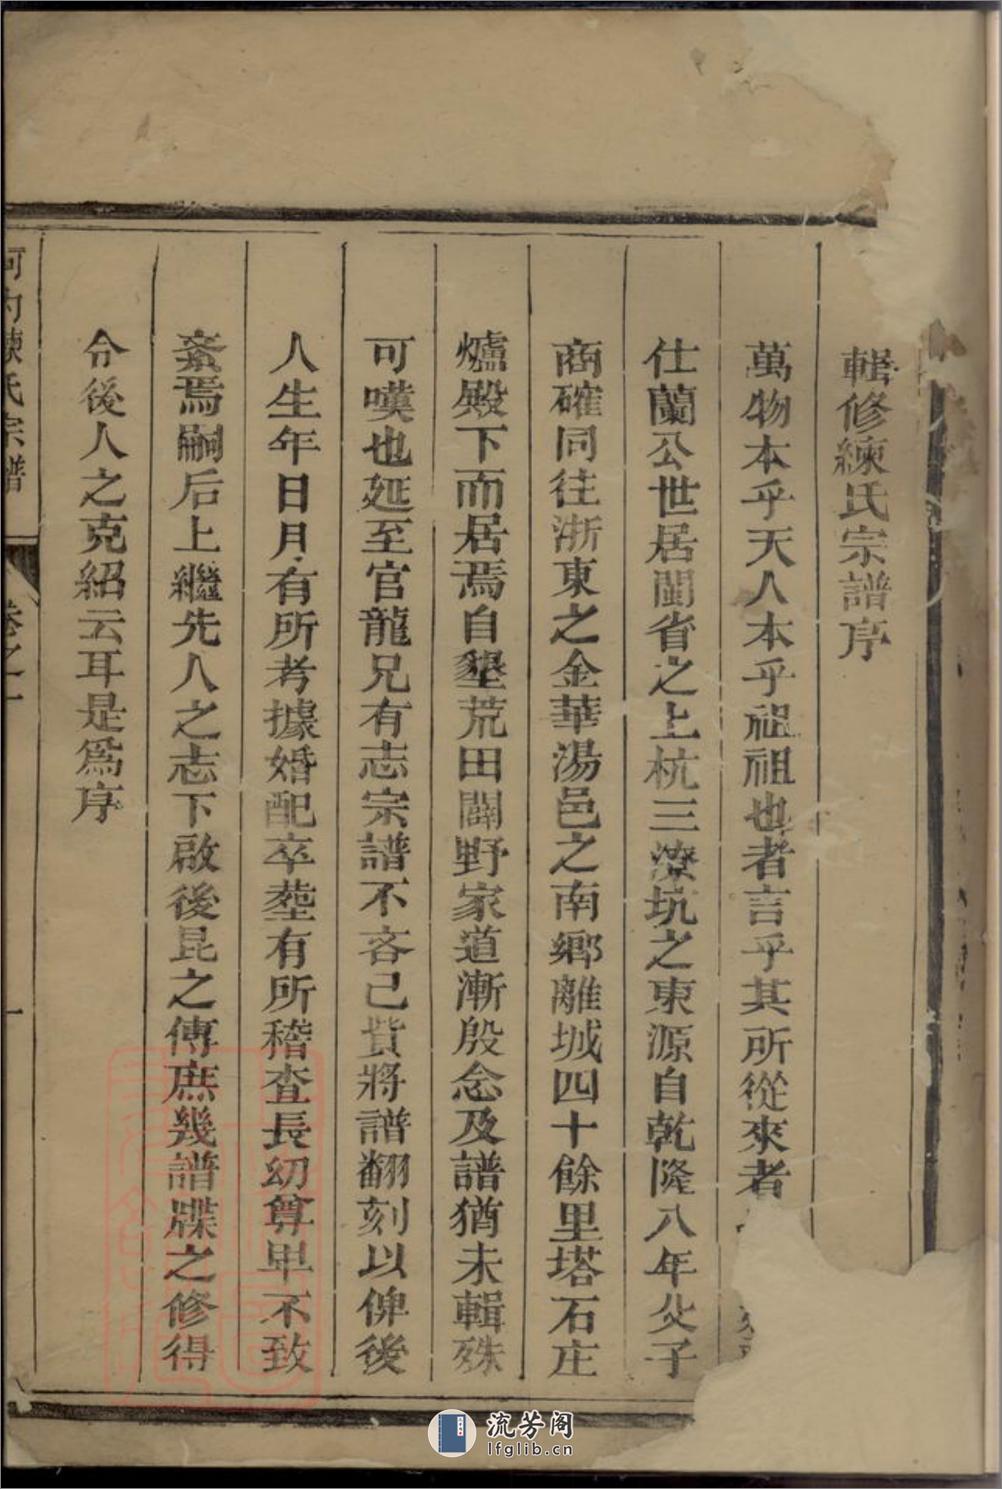 輯修練氏宗譜序
萬物本乎天人本乎祖祖也者言乎其所從來者
仕蘭公世居閩省之上杭三潦坑之東源自乾隆八年父子
商確同往浙東之金華湯邑之南鄉離城四十餘里塔石庄
爐殿下而居焉自墾荒田闢野家道漸殷念及譜猶未輯殊
可嘆也延至官龍兄有志宗譜不吝己貲將譜翻刻以俾後
人生年日月有所考據婚配卒塟有所稽查長幼尊卑不致
紊焉嗣后上繼先人之志下啟後昆之傳庶幾譜牒之修得
令後人之克紹云耳是爲序
河內練氏宗譜
卷之一
一
流芳阁
lfglib.cn